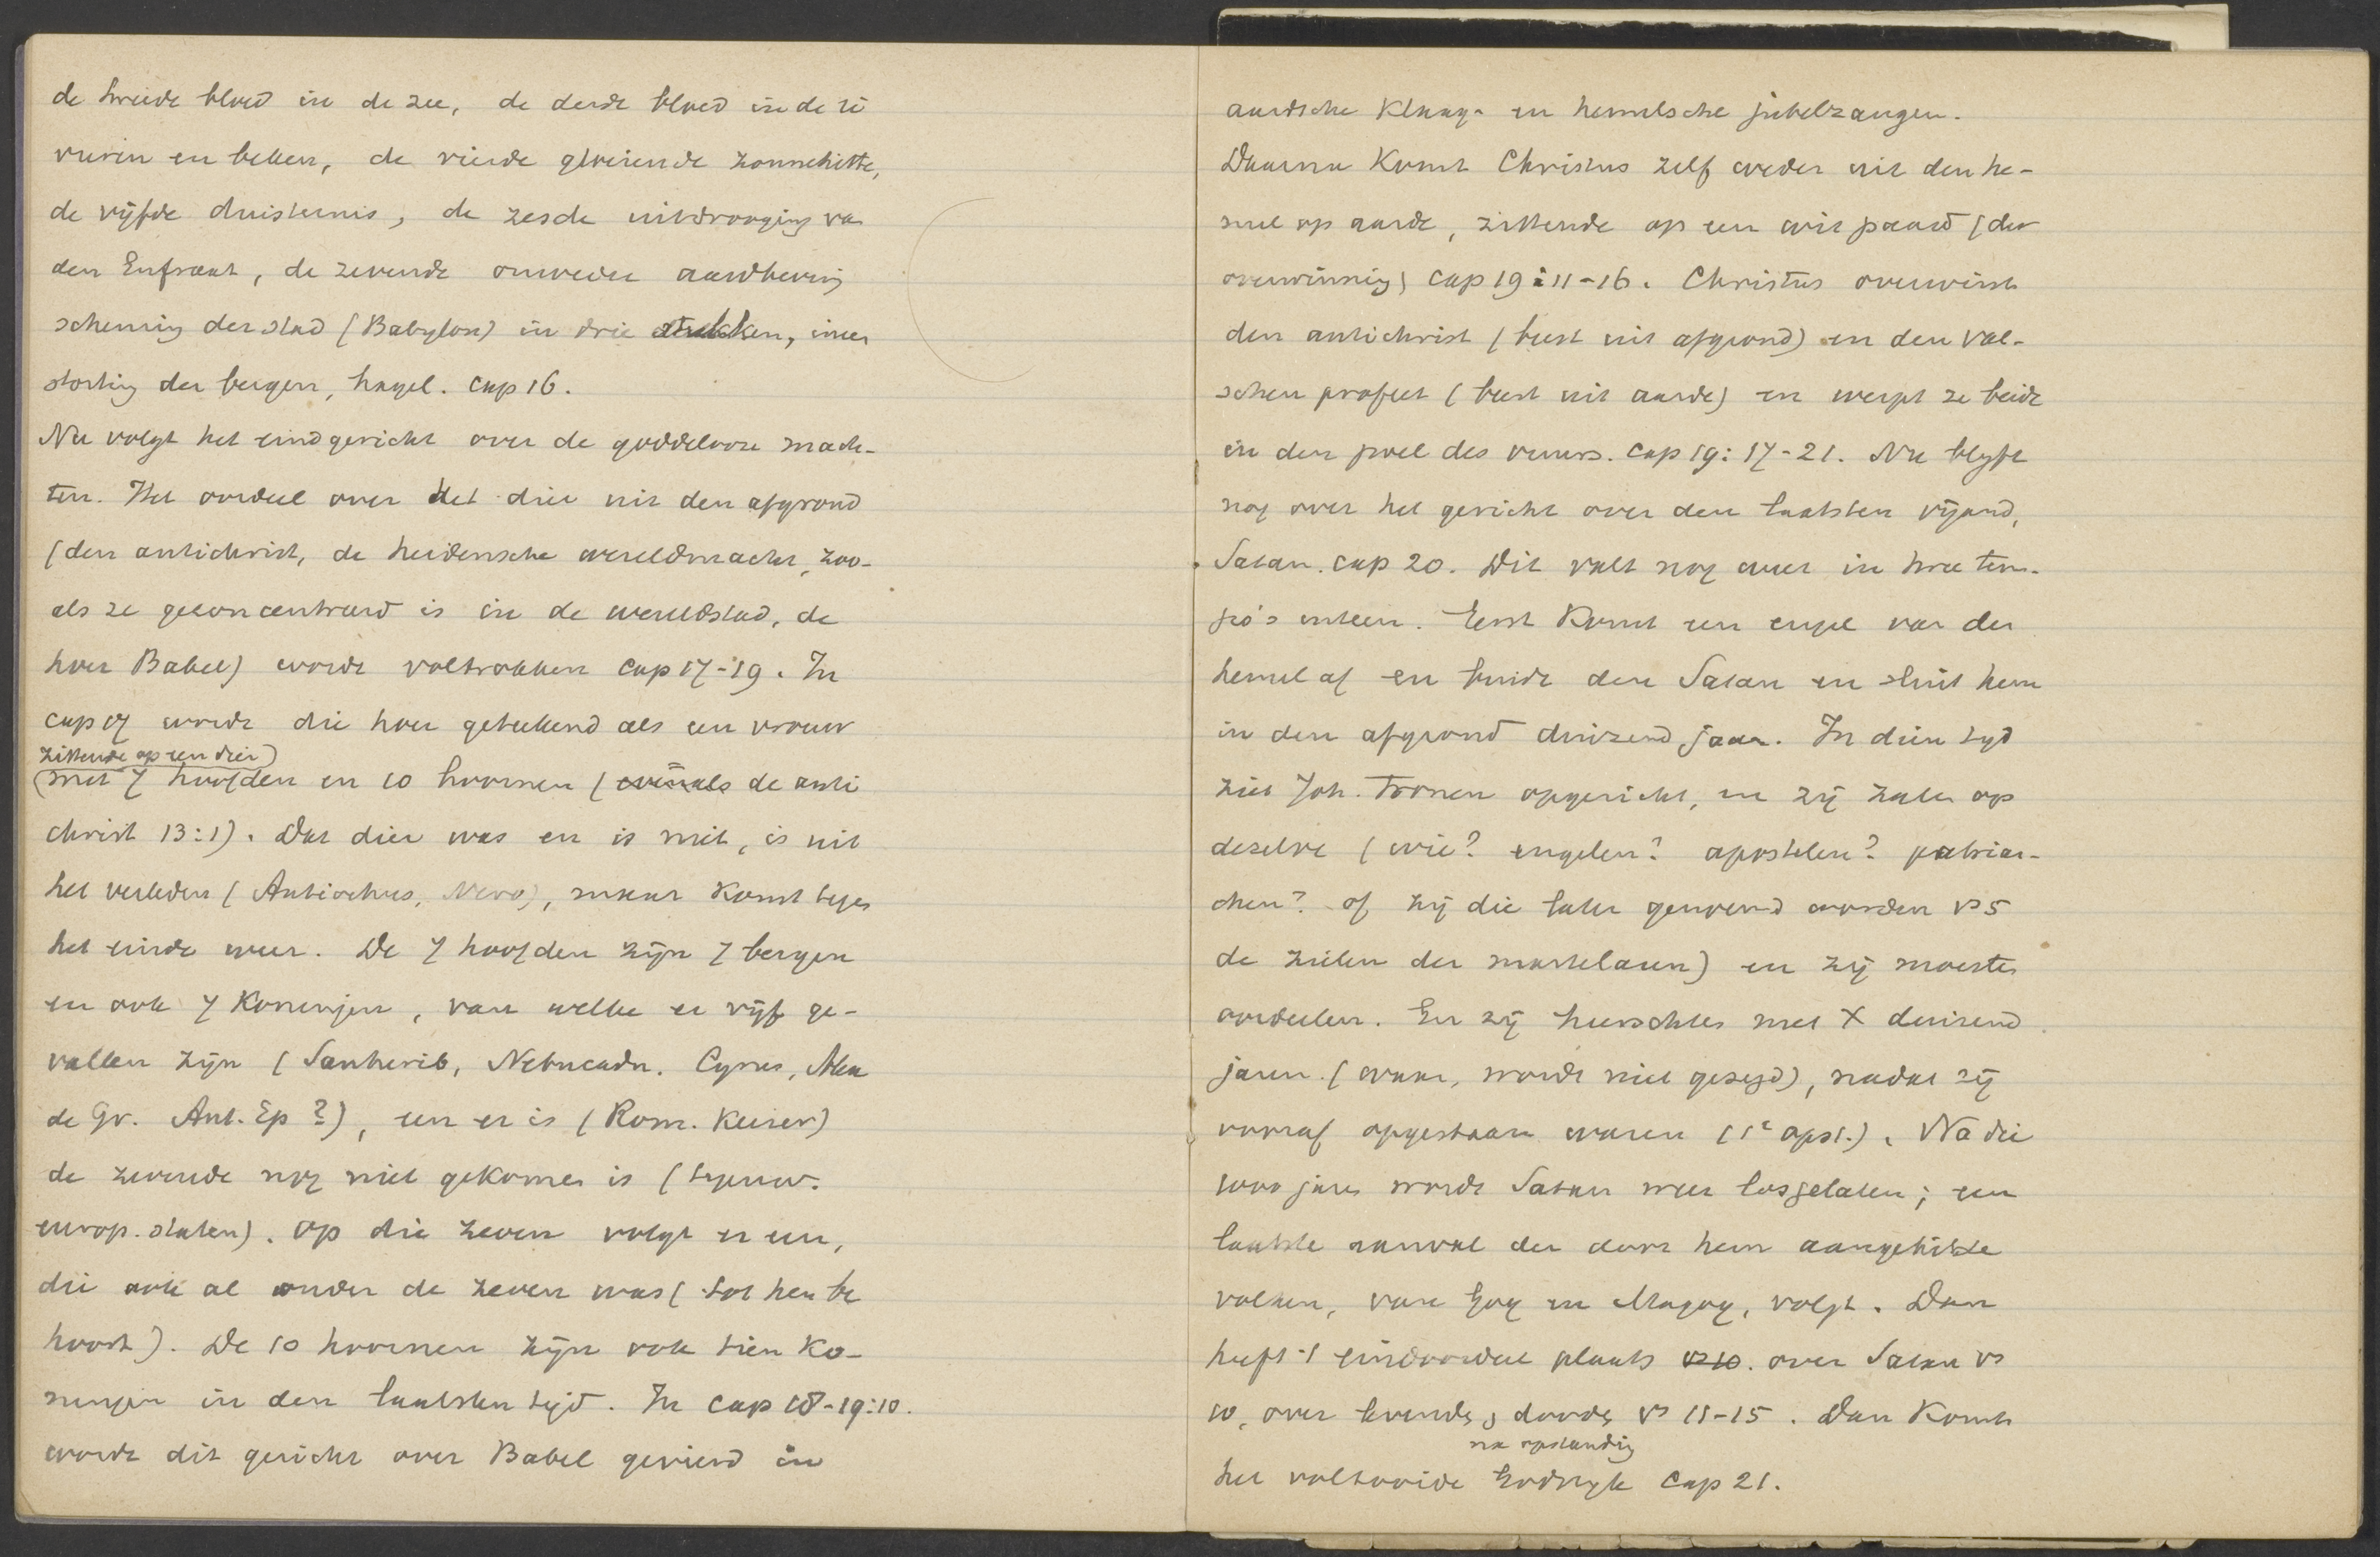 de tweede bloed in de zee, de derde bloed in de ri
vieren en beken, de vierde gloeiende zonnehitte,
de vijfde duisternis, de zesde uitdrooging van
den Eufraat, de zevende onweder aardbeving
scheuring der stad (Babylon) in drie stukken, ineen
storting der bergen, hagel. Cap 16.
Nu volgt het eindgericht over de goddelooze mach-
ten. Het oordeel over het dier uit den afgrond
(den antichrist, de heidensche wereldmacht, zoo-
als ze geconcentreerd is in de wereldstad, de
hoer Babel) wordt voltrokken Cap 17-19. In
cap 17 wordt die hoer geteekend als een vrouw
zittende op een dier)
(met 7 hoofden en 10 hoornen (evenals de anti
christ 13:1). Dat dier was en is niet, is uit
het verleden (Antiochus, Nero), maar komt tegen
het einde weer. De 7 hoofden zijn 7 bergen
en ook 7 Koningen, van welke er vijf ge-
vallen zijn (Sanherib, Nebucadn. Cyrus, Alex
de Gr. Ant. Ep?), een er is (Rom. Keizer)
de zevende nog niet gekomen is (tegenw.
europ. staten). Op die zeven volgt er een,
die ook al onder de zeven was (tot hen be
hoort). De 10 hoornen zijn ook tien Ko-
ningen in den laatsten tijd. In Cap 18-19:10.
wordt dit gericht over Babel gevierd in
aardsche Klaag- en hemelsche jubelzangen.
Daarna Komt Christus zelf weder uit den he-
mel op aarde, zittende op een wit paard (der
overwinning) Cap 19:11-16. Christus overwint
den antichrist (beest uit afgrond) en den val-
schen profeet (beest uit aarde) en werpt ze beide
in den poel des vuurs. Cap 19:17-21. Nu blijft
nog over het gericht over den laatsten vijand,
Satan. cap 20. Dit valt nog weer in twee tem-
po's uiteen. Eerst Komt een engel van den
hemel af en bindt den Satan en sluit hem
in den afgrond duizend jaar. In dien tijd
ziet Joh. Tronen opgericht, en zij zaten op
dezelve (wie? engelen? apostelen? patriar-
chen? of zij die later genoemd worden vs 5
de zielen der martelaren) en zij moesten
oordeelen. En zij heerschten met X duizend
jaren. (waar, wordt niet gezegd), nadat zij
vooraf opgestaan waren (1e opst.). Na die
1000 jaren wordt Satan weer losgelaten; een
laatste aanval der door hem aangehitste
volken, van Gog en Magog, volgt. Dan
heeft 't eindoordeel plaats vs 10. over Satan vs
10, over levenden, dooden vs 11-15. Dan Komt
na opstanding
het voltooide Godsrijk Cap 21.